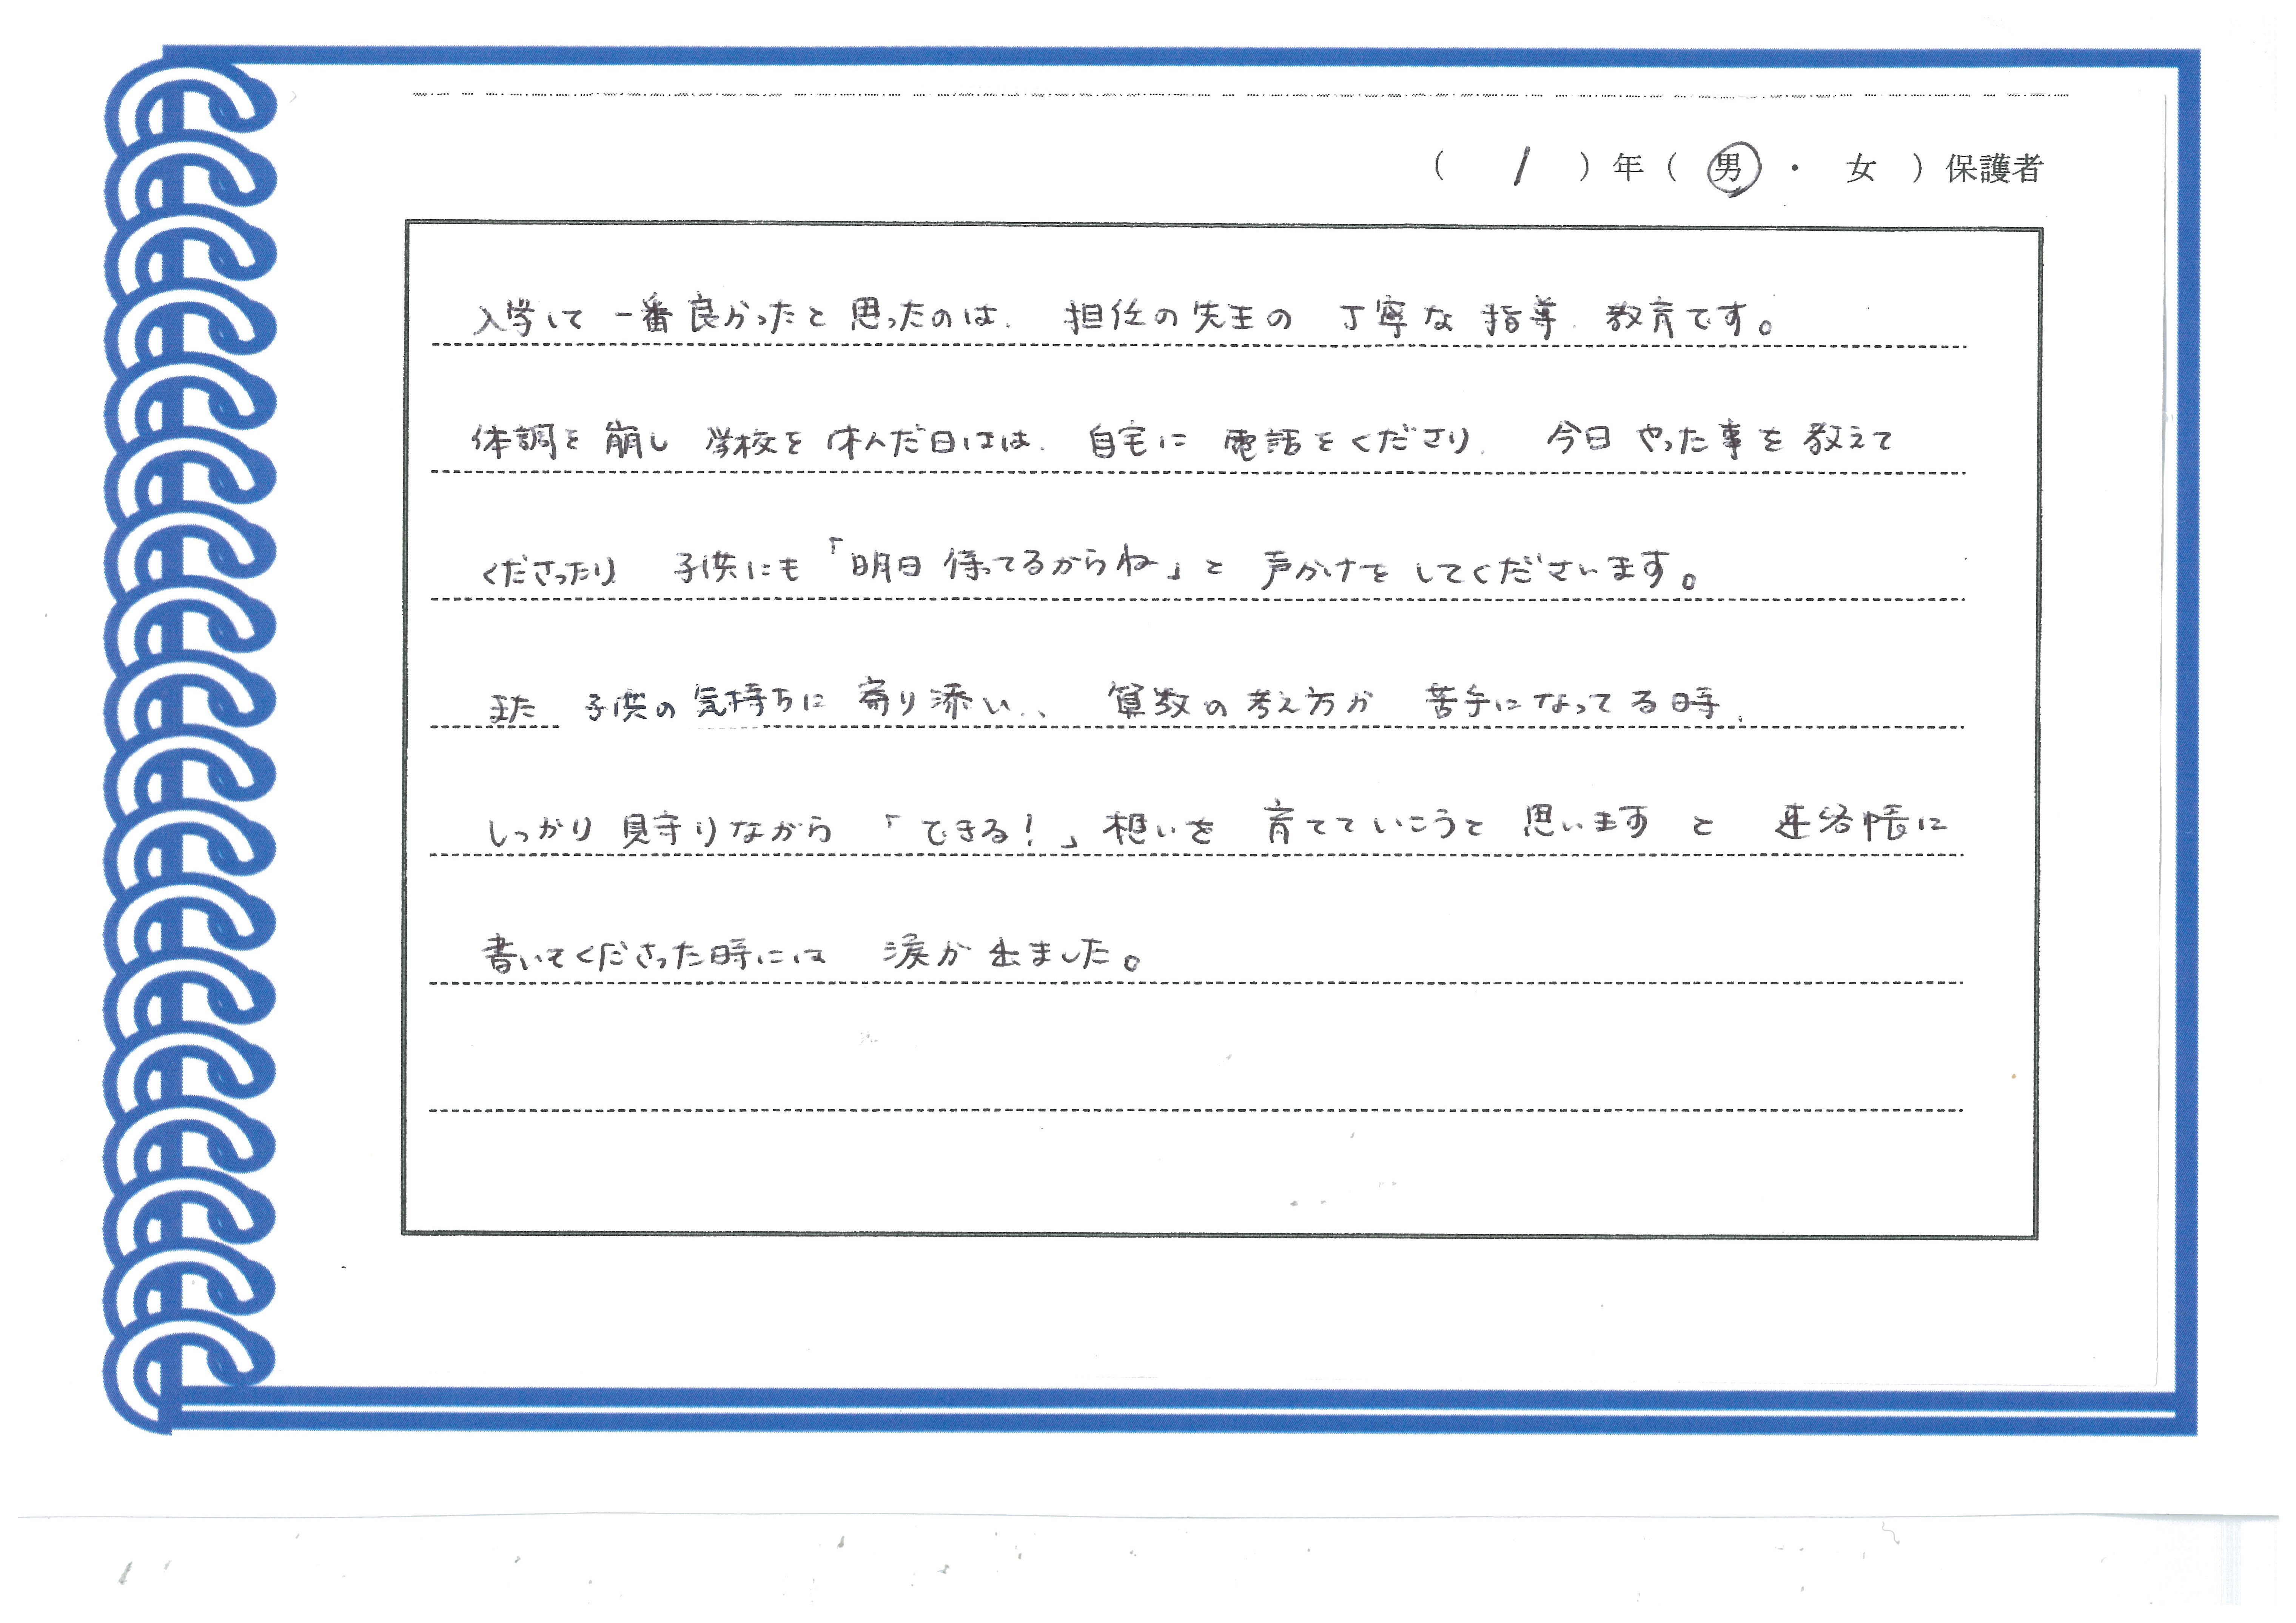 ( 1 ) 年 ( 男 ・ 女 ) 保護者
入学して 一番良かったと思ったのは、担任の先生の 丁寧な指導、教育です。
体調を崩し 学校を休んだ日には、自宅に 電話をくださり、今日やった事を教えて
くださったり 子供にも「明日待ってるからね」と 声かけを してくださいます。
また 子供の気持ちに 寄り添い、、算数の考え方が 苦手になってる時、
しっかり見守りながら 「できる!」想いを 育てていこうと 思います と 連絡帳に
書いてくださった時には 涙が出ました。